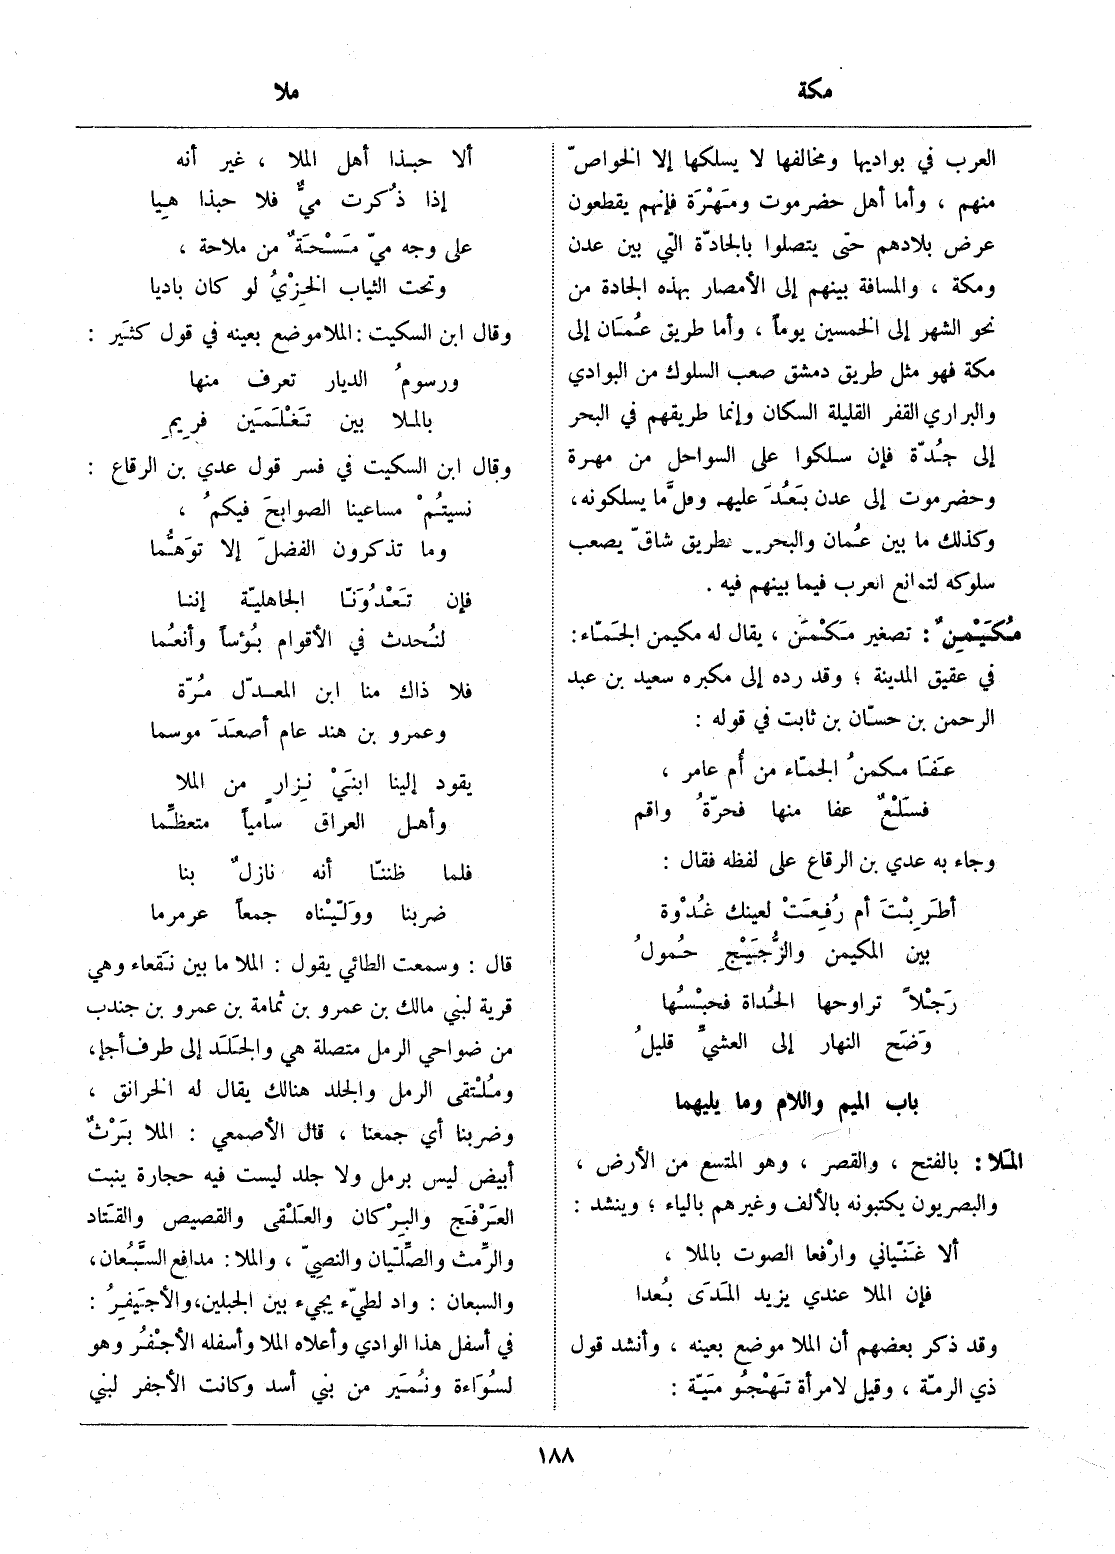 مكة
ملا
العرب في بواديها ومخالفها لا يسلكها إلا الخواصّ
منهم ، وأما أهل حضرموت ومَهْرَة فإنهم يقطعون
عرض بلادهم حتى يتصلوا بالجادّة التي بين عدن
ومكة ، والمسافة بينهم إلى الأمصار بهذه الجادة من
نحو الشهر إلى الخمسين يوماً ، وأما طريق عُمَان إلى
مكة فهو مثل طريق دمشق صعب السلوك من البوادي
والبراري القفر القليلة السكان وإنما طريقهم في البحر
إلى جُدّة فإن سلكوا على السواحل من مهرة
وحضرموت إلى عدن بَعُدَ عليهم وقلَّما يسلكونه،
وكذلك ما بين عُمان والبحرين بطريق شاقّ يصعب
سلوكه لتمانع العرب فيما بينهم فيه .
مُكَيْمِنٌ : تصغير مَكْمَن ، يقال له مكيمن الجَمّاء :
في عقيق المدينة ؛ وقد رده إلى مكبره سعيد بن عبد
الرحمن بن حسّان بن ثابت في قوله :
عَفَا مكمنُ الجمّاء من أُم عامر ،
فسَلْعٌ عفا منها فحرّةُ واقم
وجاء به عدي بن الرقاع على لفظه فقال :
أطَرِبْتَ أم رُفِعَتْ لعينك غُدْوة
بين المكيمن والزُّجَيْجِ حُمولُ
رَجْلاً تراوحها الحُداة فحبْسُها
وَضَح النهار إلى العشيِّ قليلُ
باب الميم واللام وما يليهما
المَلا : بالفتح ، والقصر ، وهو المتسع من الأرض ،
والبصريون يكتبونه بالألف وغيرهم بالياء ؛ وينشد :
ألا غَنّياني وارْفعا الصوت بالملا ،
فإن الملا عندي يزيد المَدَى بُعدا
وقد ذكر بعضهم أن الملا موضع بعينه ، وأنشد قول
ذي الرمّة ، وقيل لامرأة تَهْجُو مَيّة :
ألا حبذا أهل الملا ، غير أنه
إذا ذُكرت ميٌّ فلا حبذا هِيا
على وجه ميّ مَسْحَةٌ من ملاحة ،
وتحت الثياب الخِزْيُ لو كان باديا
وقال ابن السكيت : الملا موضع بعينه في قول كثَير :
ورسومُ الديار تعرف منها
بالملا بين تَغْلَمَين فريمِ
وقال ابن السكيت في فسر قول عدي بن الرقاع :
نسيتُمْ مساعينا الصوابحَ فيكمُ ،
وما تذكرون الفضلَ إلا توَهُّما
فإن تَعْدُوَنّا الجاهليّة إننا
لنُحدث في الأقوام بُؤساً وأنعُما
فلا ذاك منا ابن المعدّل مُرّة
وعمرو بن هند عام أصعَدَ موسما
يقود إلينا ابنَيْ نِزارٍ من الملا
وأهل العراق سامياً متعظِّما
فلما ظننّا أنه نازلٌ بنا
ضربنا وولّيْناه جمعاً عرمرما
قال : وسمعت الطائي يقول : الملا ما بين نَقعاء وهي
قرية لبني مالك بن عمرو بن ثمامة بن عمرو بن جندب
من ضواحي الرمل متصلة هي والجَلَد إلى طرف أجإ،
ومُلْتقى الرمل والجلد هنالك يقال له الخرانق ،
وضربنا أي جمعنا ، قال الأصمعي : الملا بَرْثٌ
أبيض ليس برمل ولا جلد ليست فيه حجارة ينبت
العَرْفَج والبِرْكان والعَلْقى والقصيص والقَتاد
والرِّمث والصِّلّيان والنصيّ ، والملا : مدافع السَّبُعان،
والسبعان : واد لطيّء يجيء بين الجبلين، والأجيَفرُ :
في أسفل هذا الوادي وأعلاه الملا وأسفله الأجْفُر وهو
لسُوَاءة ونُمَير من بني أسد وكانت الأجفر لبني
١٨٨